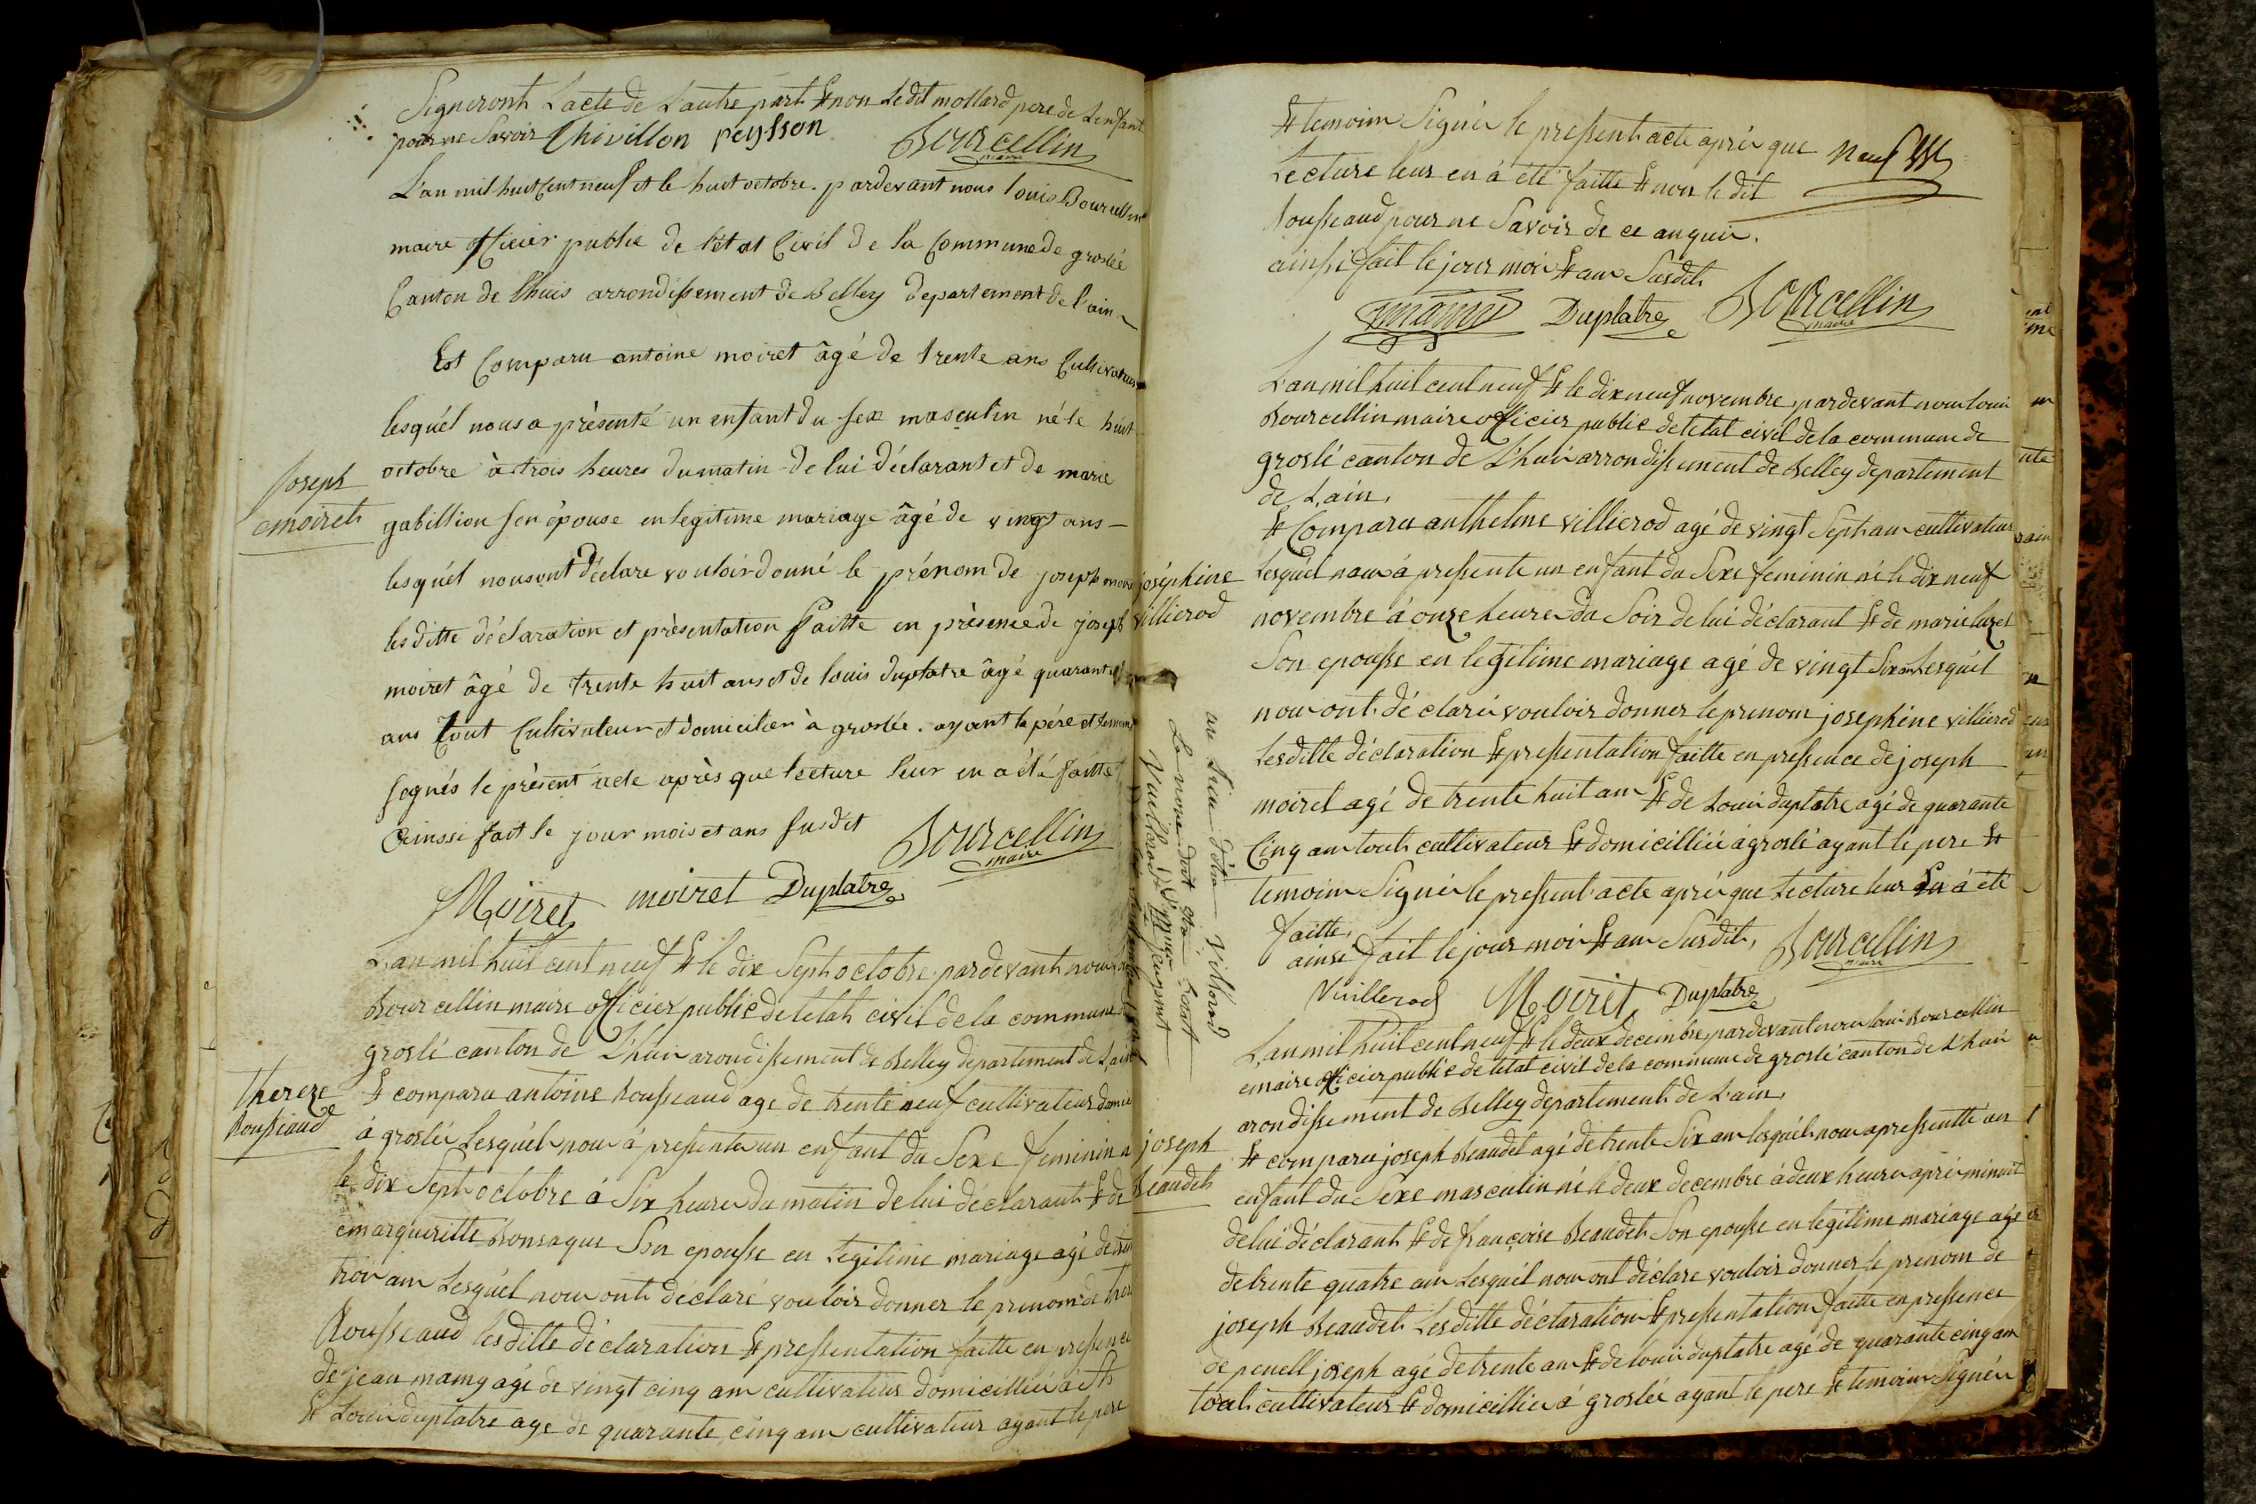 Signeront L'acte de L'autre part et non ledit mollard pere de L'enfant
pour ne Savoir Chivillon peysson Bourcellin
maire
L'an mil huit Cent neuf et le huit octobre. pardevant nous louis Bourcellin
maire officier public de l'état Civil de la Commune de groslée
Canton de l'huis arrondissement de Belley département de l'ain
Est Comparu antoine moiret âgé de trente ans Cultivateur
lesquél nous a présenté un enfant du sex masculin né le huit
octobre à trois heures du matin de lui déclarant et de marie
Joseph
moiret
gabillion son épouse en legitime mariage âgé de vingt ans
lesquél nous ont Déclare vouloir donné le prénom de joseph moiret
les ditte déclaration et présentation faitte en présence de joseph
moiret âgé de trente huit ans et de louis duplatre âgé quarante
ans tout Cultivateur et domicilier à groslée. ayant le pére et temoins
signés le présent acte après que lecture leur en a été faitte
Ainssi fait le jour mois et ans susdit Bourcellin
maire
Moiret moiret Duplatre
L'an mil huit cent neuf et le dix Sept octobre pardevant nous
Bourcellin maire officier public de letat civil de la commune
groslé canton de L'huis arondissement de Belley departement de L'ain
Thereze
Rousseaud
et comparu antoine Rousseaud age de trente neuf cultivateur
à groslée Lesquél nous à pressenté un enfant du Sexe feminin
le dix Sept octobre à Six heures du matin de lui déclarant et de
margueritte Bonsaque Son epousse en Legitime mariage agé de
trois ans Lesquél nous ont déclaré vouloir donner le prenom de
Rousseaud les ditte déclaration et pressentation faitte en pressence
de jean mamy agé de vingt cinq ans cultivateur domicillié à
et Louis duplatre age de quarante cinq ans cultivateur ayant le pere
et temoins Signés le pressent acte aprés que
Lecture leur en à été faitte et non le dit
Rousseaud pour ne Savoir de ce anquis.
ainssi fait le jour mois et an Susdit
Duplatre Bourcellin
maire
L'an mil huit cent neuf et le dix neuf novembre, pardevant nous louis
Bourcellin maire officier public de letat civil de la commune de
groslé canton de L'huis arrondissement de Belley departement
de L'ain,
et Comparu anthelme villierod agé de vingt Sept ans cultivateur
joséphine
villierod
Lesquél nous à pressente un enfant du Sexe feminin né le dix neuf
novembre à onze heures du Soir de lui déclarant et de marie
Son epousse en legitime mariage agé de vingt Six ans Lesquél
nous ont déclarés vouloir donner le prenom joséphine villierod
Lesditte déclaration et pressentation faitte en pressence de joseph
moiret agé de trente huit ans et de Louis duplatre agé de quarante
Cinq ans tout cultivateur et domicilliés à groslé ayant le pere et
temoins Signés le pressent acte aprés que Lecture leur en à été
faitte,
ainsi fait le jour mois et an Susdit, Bourcellin
maire
Vuillerod Moiret Duplatre
L'an mil huit cent neuf et le deux decembre, pardevant nous louis Bourcellin
maire officier public de letat civil de la commune de groslé canton de L'huis
arondissement de Belley departement de L'ain,
joseph
Beaudet
et comparu joseph Beaudet agé de trente Six ans lesquél nous a pressentté un
enfant du Sexe masculin né le deux decembre à deux heures aprés minuit
de lui déclarant et de françoise Beaudet Son epousse en legitime mariage agé
de trente quatre ans Lesquél nous ont déclare vouloir donner le prenom de
joseph Beaudet Lesditte déclaration et pressentation faitte en pressence
de penell joseph agé de trente ans et de louis duplatre agé de quarante cinq ans
tout cultivateur et domicillié à groslée ayant le pere et temoins Signés